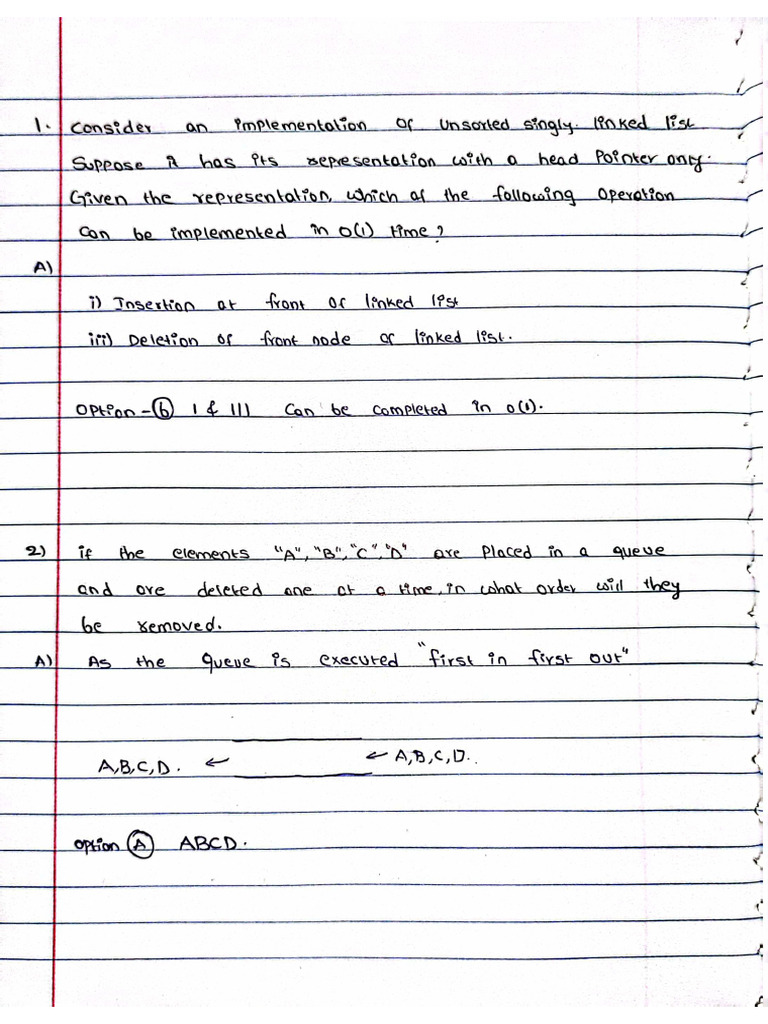 1. Consider an implementation of unsorted singly. linked list
Suppose it has its representation with a head Pointer only.
Given the representation, which of the following operation
can be implemented in O(1) time?
A)
i) Insertion at front of linked list
iii) Deletion of front node of linked list.
Option - b I & III can be completed in O(1).
2) if the elements "A", "B", "C", "D" are placed in a queue
and are deleted one at a time, in what order will they
be removed.
A) As the queue is executed "first in first out"
A,B,C,D. ← ← A,B,C,D.
option A ABCD.